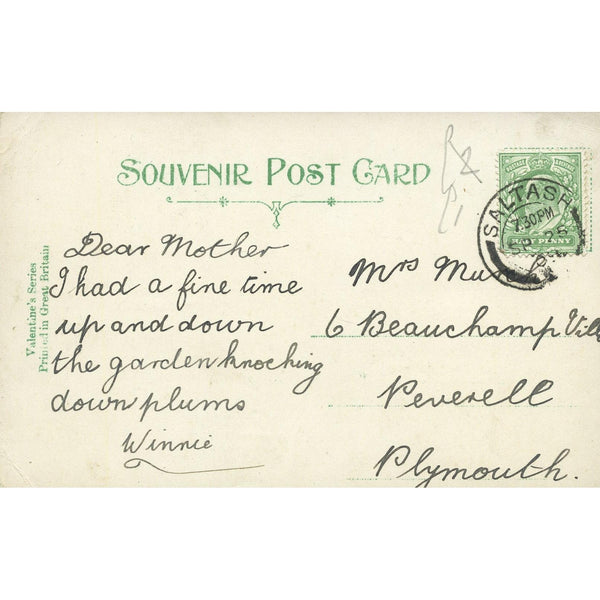 SOUVENIR POST CARD
Valentine's Series
Printed in Great Britain
Dear Mother
I had a fine time
up and down
the garden knocking
down plums
Winnie
SALTASH
7.30PM
25
HALF PENNY
Mrs
6 Beauchamp Vill
Peverell
Plymouth.